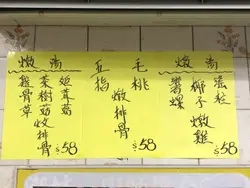 燉湯
雞骨草
茶樹菇炆排骨
姬茸菇
$58
五指
毛桃
燉排骨
$58
燉湯
響螺
椰子燉雞
$58